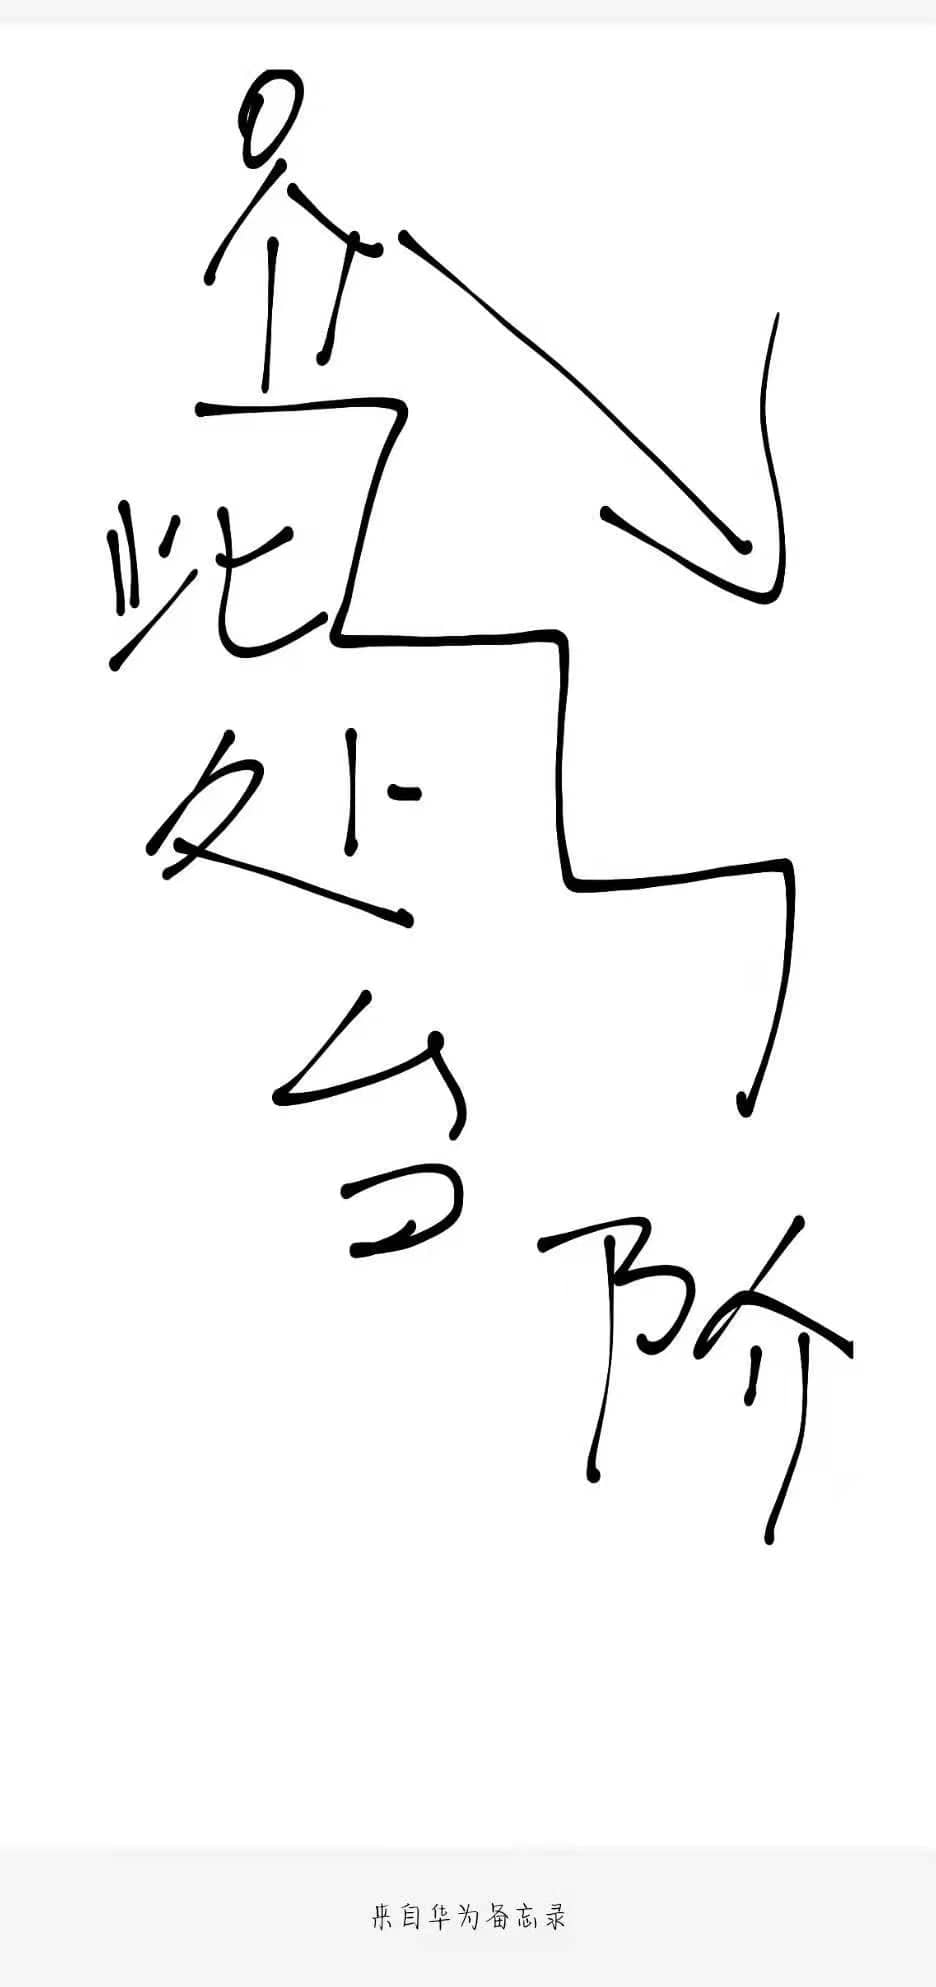 此
处
台
阶
来自华为备忘录